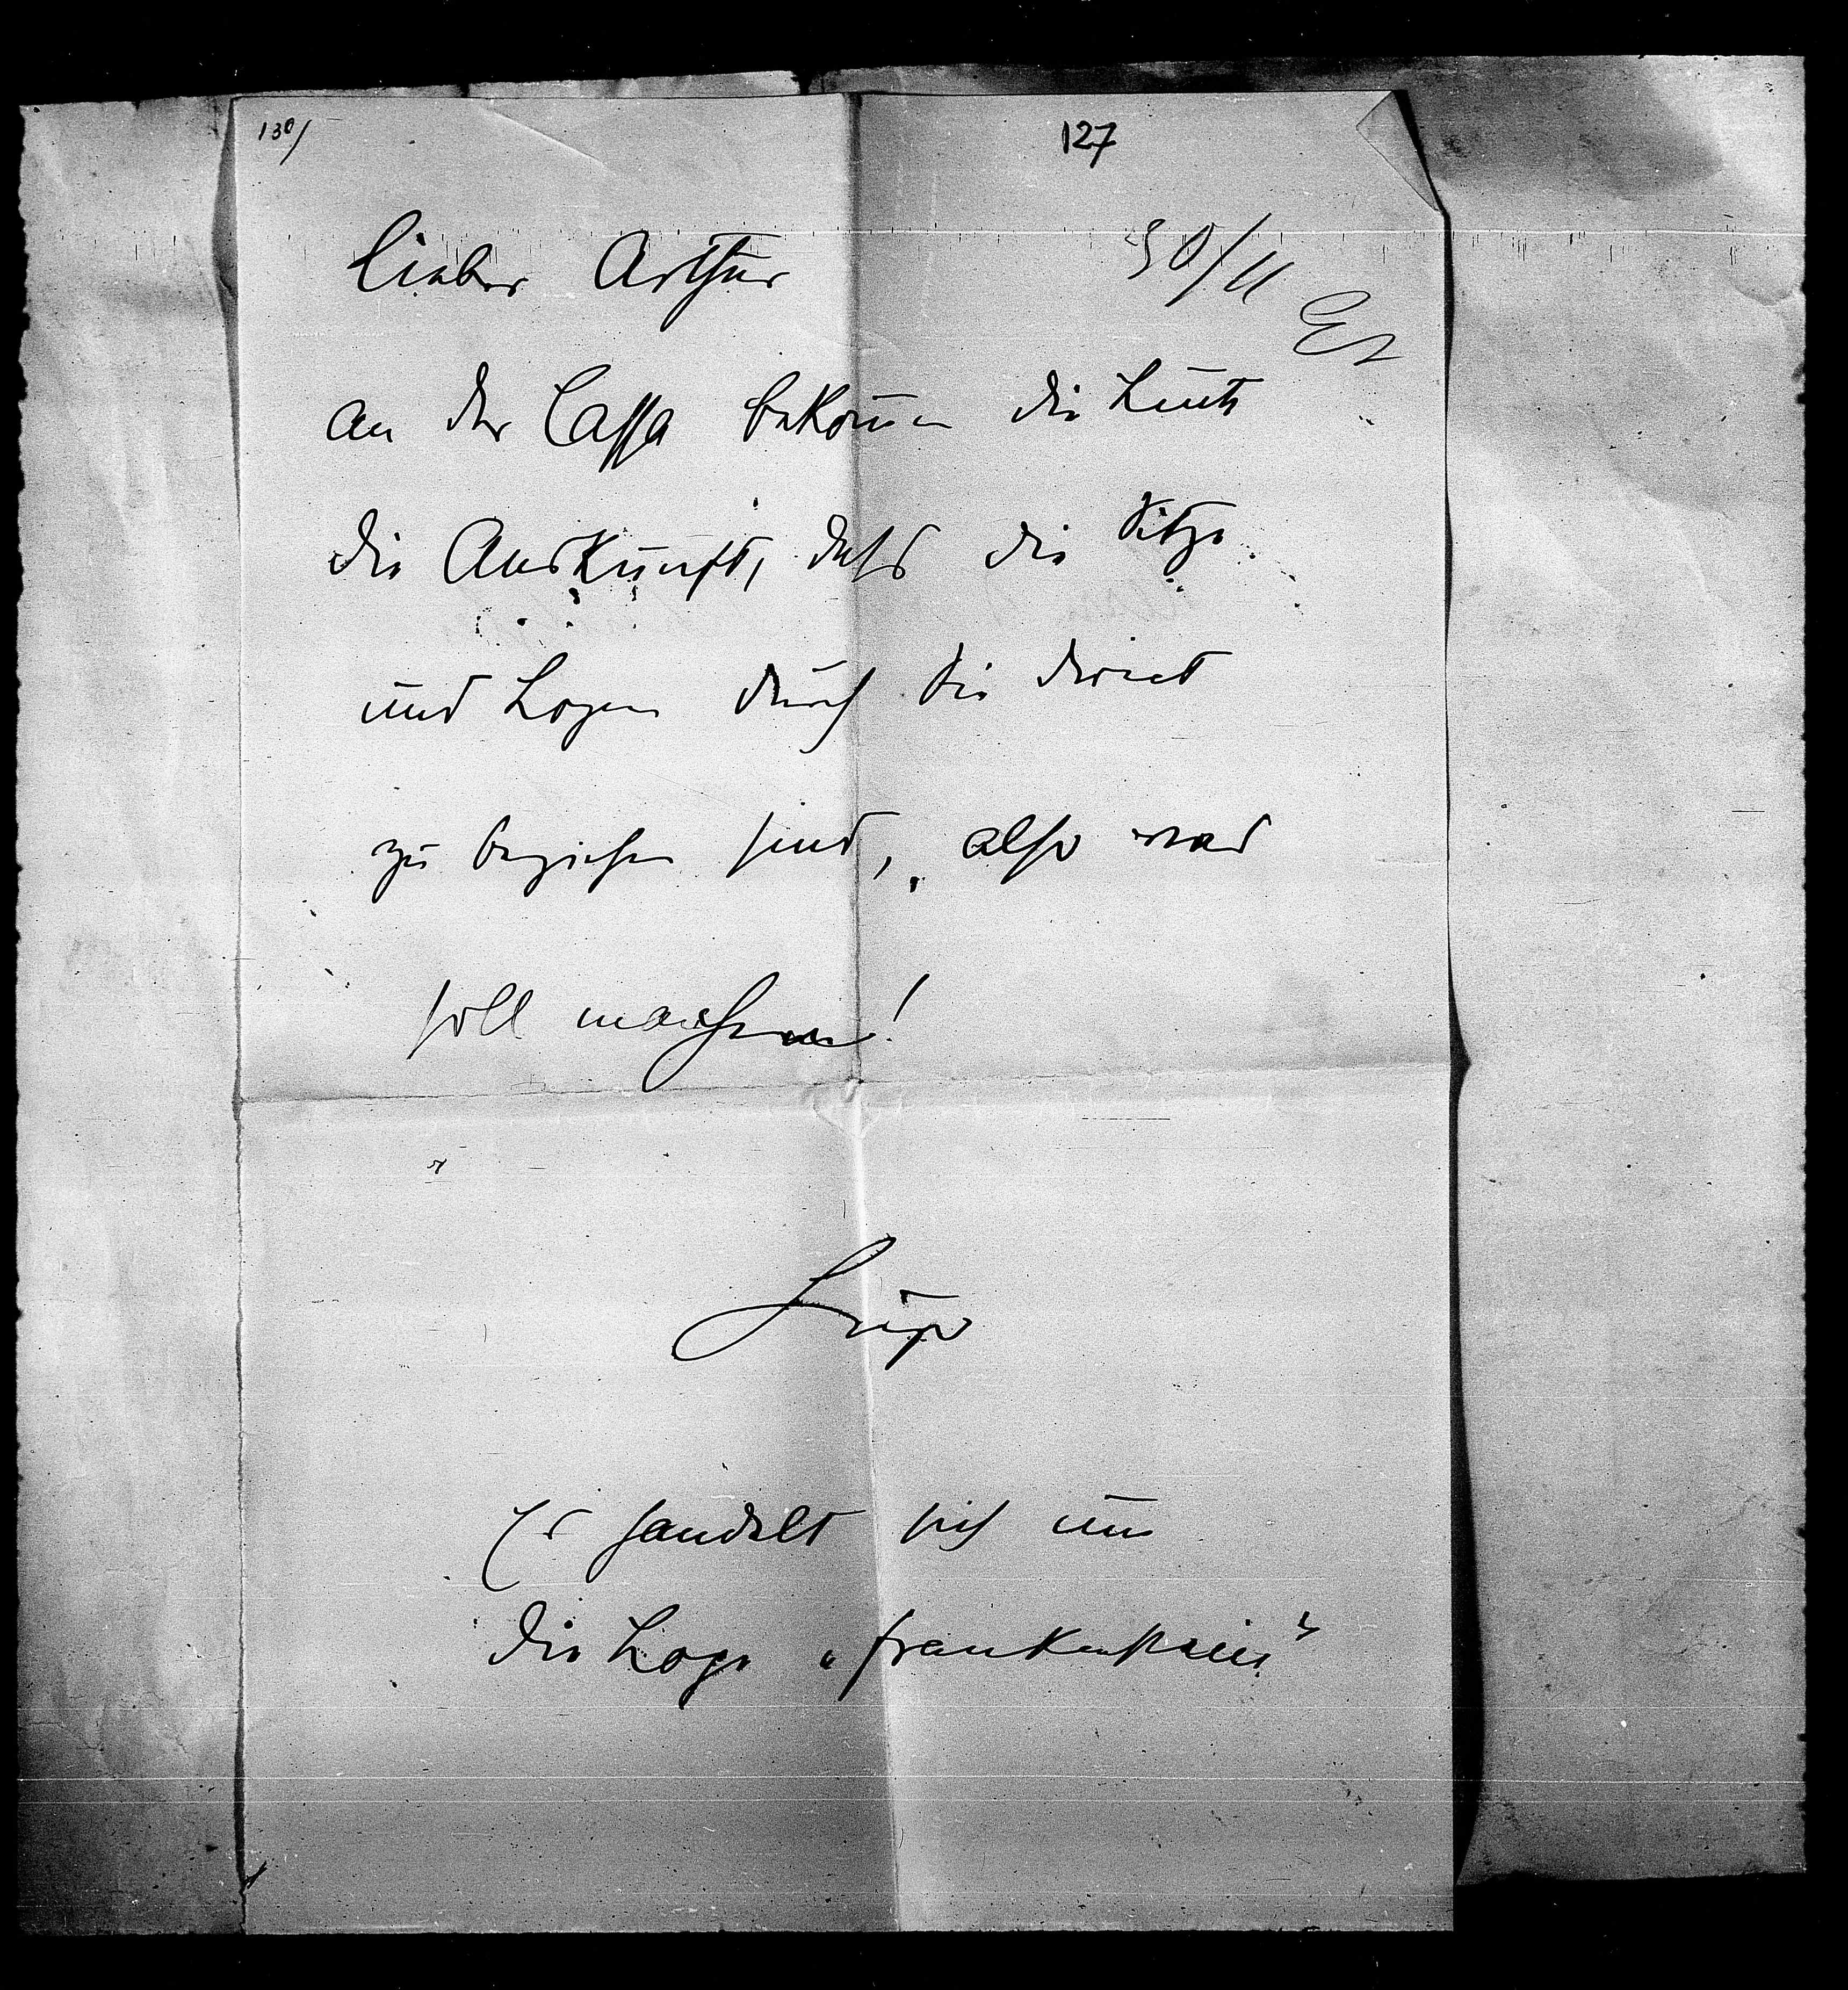 130/
127
lieber Arthur
30/11
an der Cassa bekom̄en die Leute
die Auskunft, dass die Sitze
und Logen durch Sie direct
zu beziehen sind, also was
soll man thun!
Hugo
Es handelt sich um
die Loge „Frankenstein"